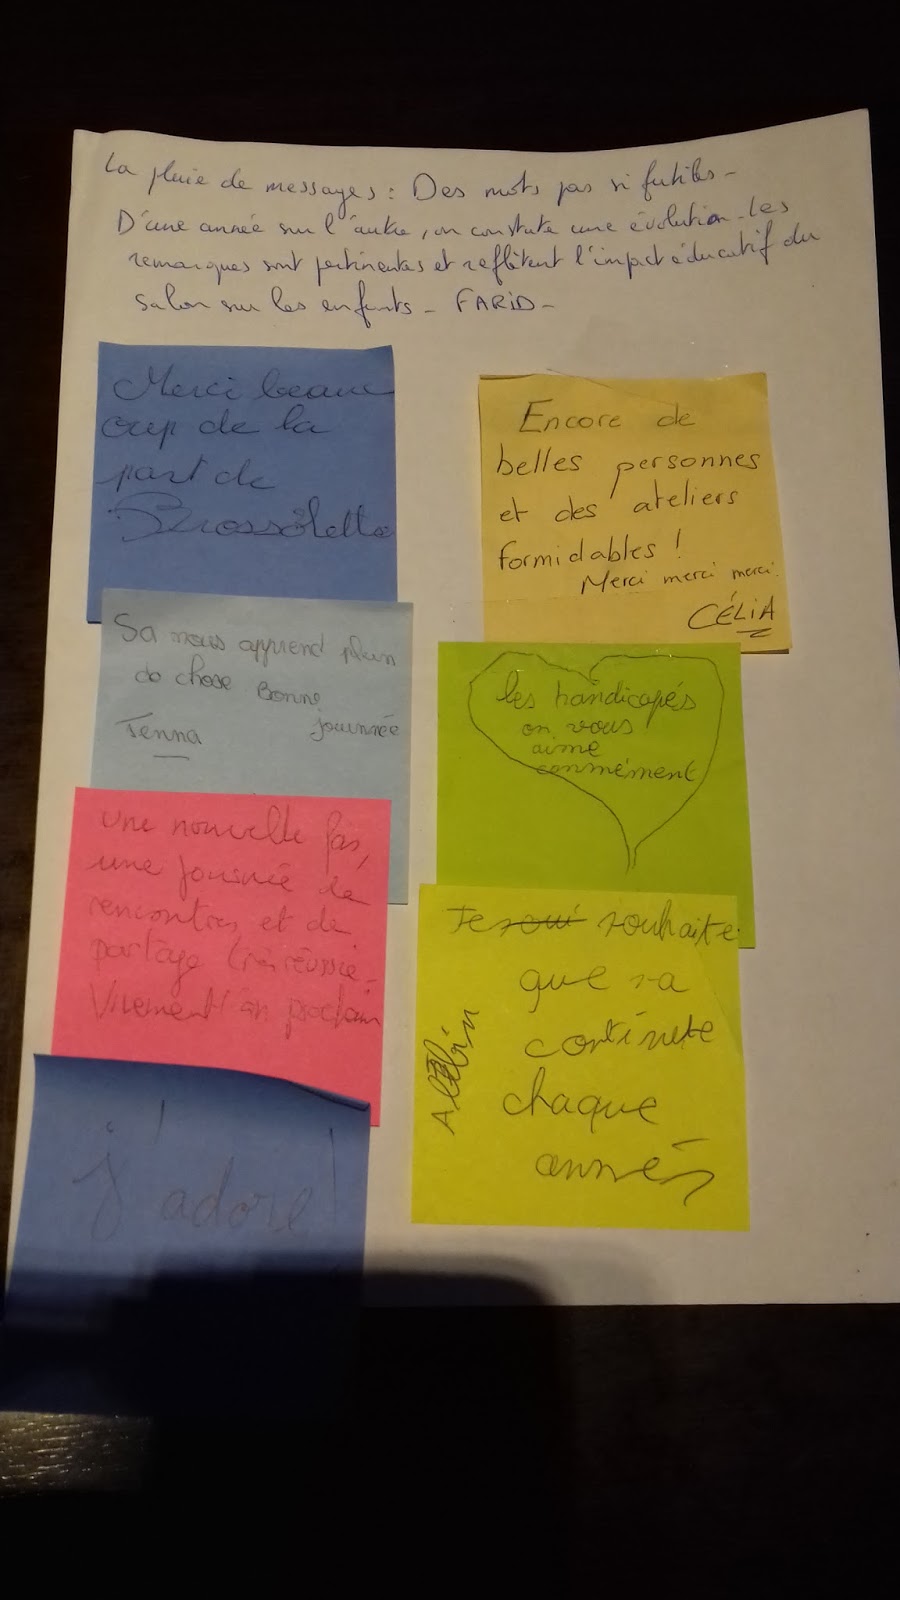 La pluie de messages : Des mots pas si futiles -
D'une année sur l'autre, on constate une évolution. Les
remarques sont pertinentes et reflètent l'impact éducatif du
Salon sur les enfants - FARID -
Merci beau
coup de la
part de
Brossôlette
Sa nous apprend plein
do chose Bonne
journnée
Jenna
une nouvelle fois,
une journée de
rencontres et de
partage très réussie.
Vivement l'an prochain
j'adore!
Encore de
belles personnes
et des ateliers
formidables !
Merci merci merci.
CÉLIA
les handicapés
on vous
aime
enormément
Je souhaite
que sa
continue
chaque
annés